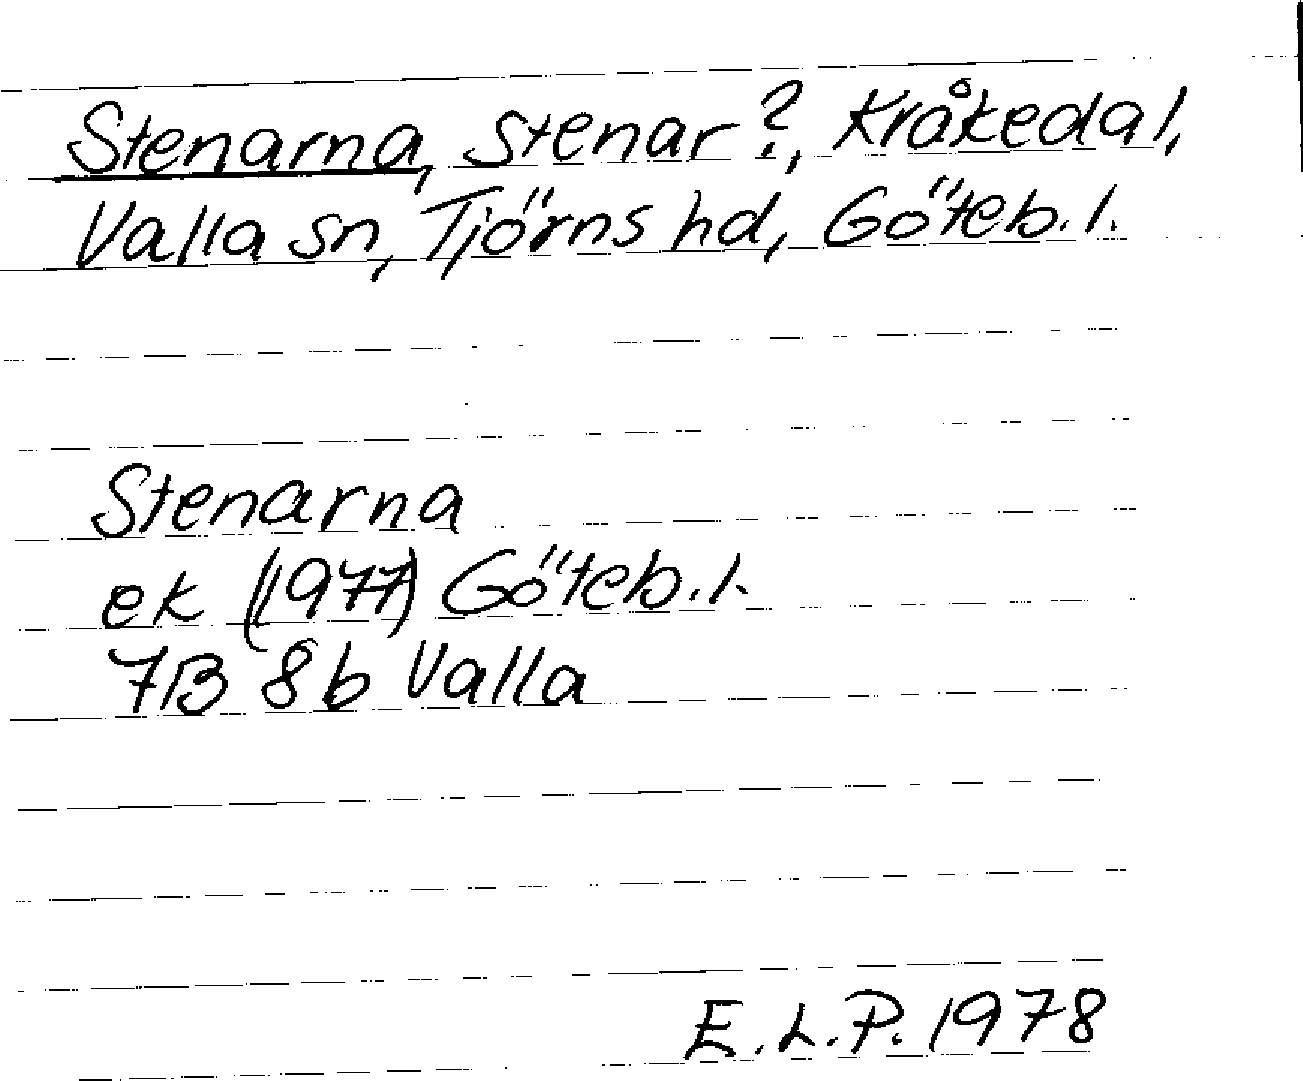 Stenarna, stenar?, Kråkedal,
Valla sn, Tjörns hd, Göteb. l.
Stenarna
ek (1977) Göteb. l.
7B 8b Valla
E.L.P. 1978